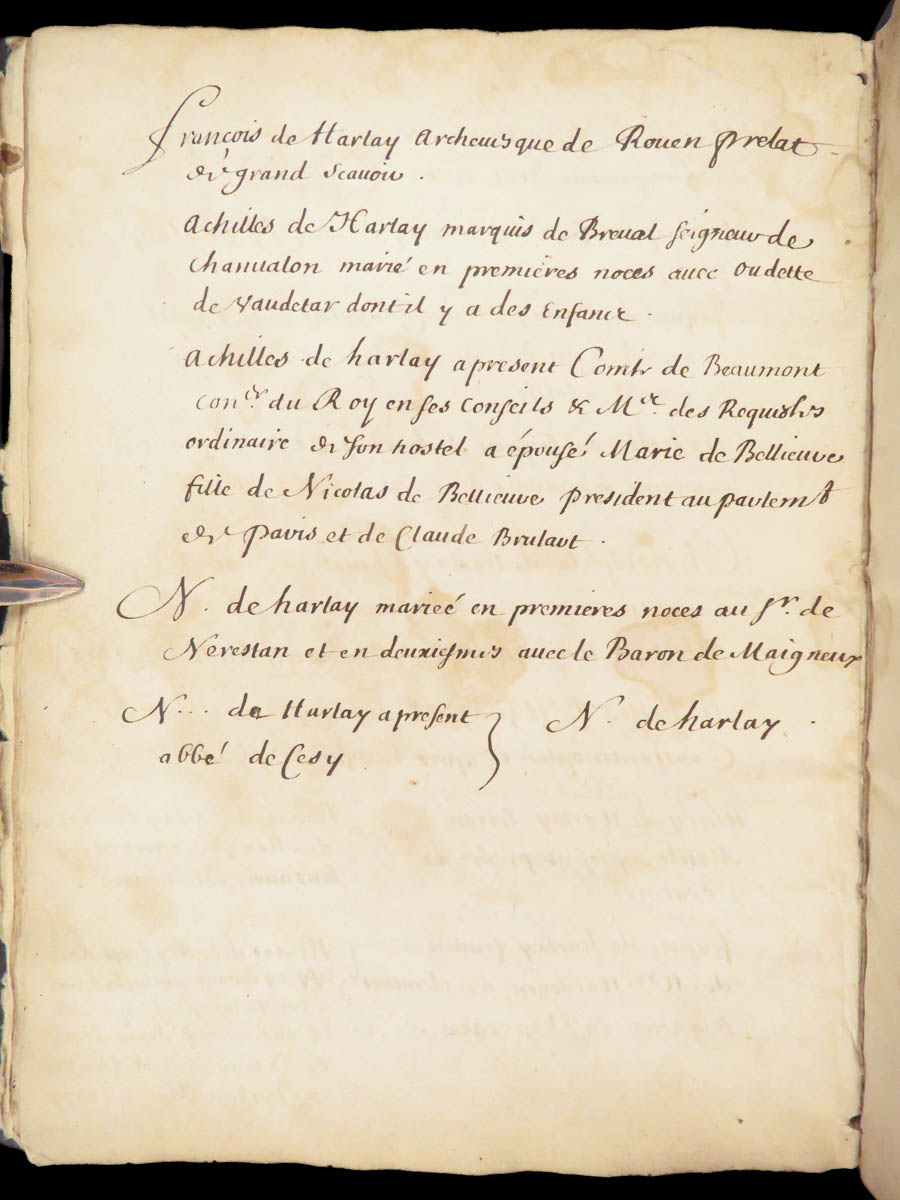 François de Harlay Archeuesque de Rouen prelat
de grand scauoir .
Achilles de Harlay marquis de Breual seigneur de
Chanualon marié en premières noces auec Oudette
de Vaudetar dont il y a des Enfans .
Achilles de harlay apresent Comte de Beaumont
con.er du Roy en ses conseils & M.e des Requestes
ordinaire de son hostel a épousé Marie de Bellieure
fille de Nicolas de Bellieure president au parlem.t
de Paris et de Claude Brulart .
N . de harlay marieé en premieres noces au sr. de
Nerestan et en deuxiesmes auec le Baron de Maigneux
N... de Harlay apresent } N. de harlay .
abbé de Cesy